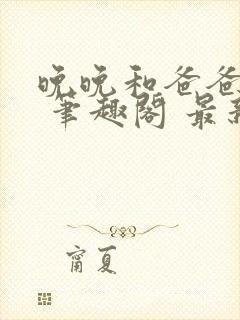 晚晚和爸爸
笔趣阁 最新
甯夏